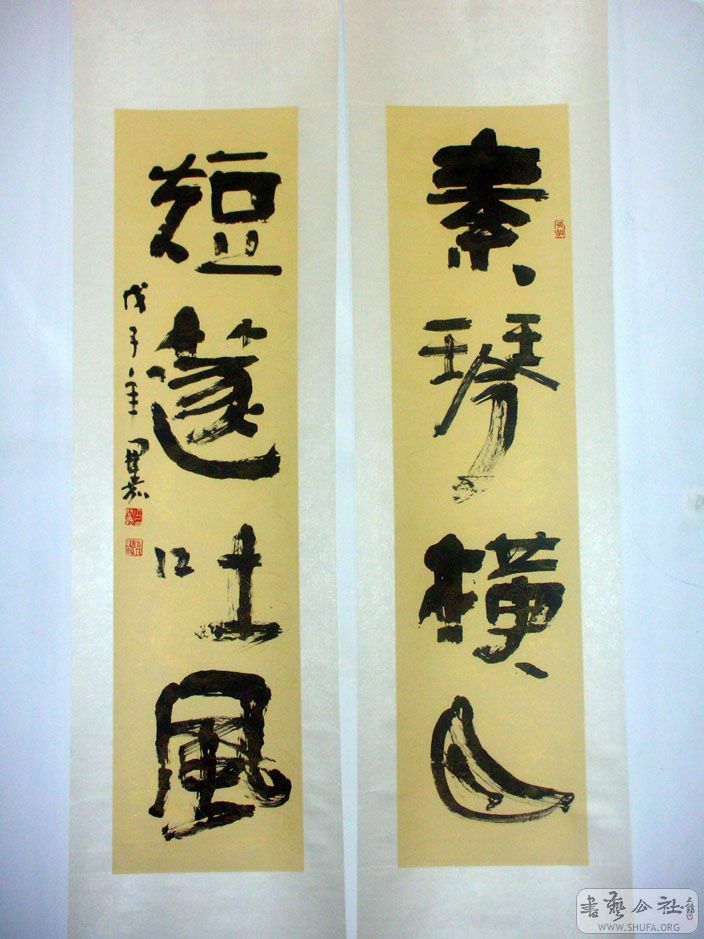 素琴橫月
短篴吐風
戊子年
書藝公社
WWW.SHUFA.ORG